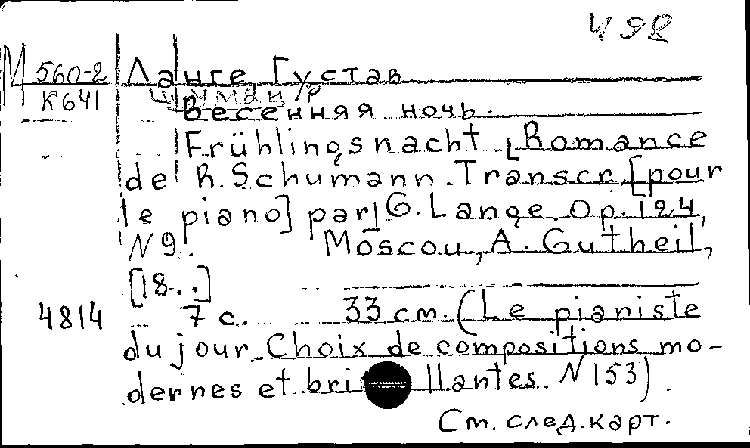 498
М 560-2 Ланге Густав
К641 Шуман Р
Весенняя ночь.
Frühlingsnacht [Romance
de R. Schumann. Transcr. [pour
le piano] par G. Lange. Op. 124,
N 9. Moscou, A. Gutheil,
[18..]
4814 7 с. 33 см. (Le pianiste
du jour. Choix de compositions mo-
dernes et brillantes. N 153).
См. след. карт.